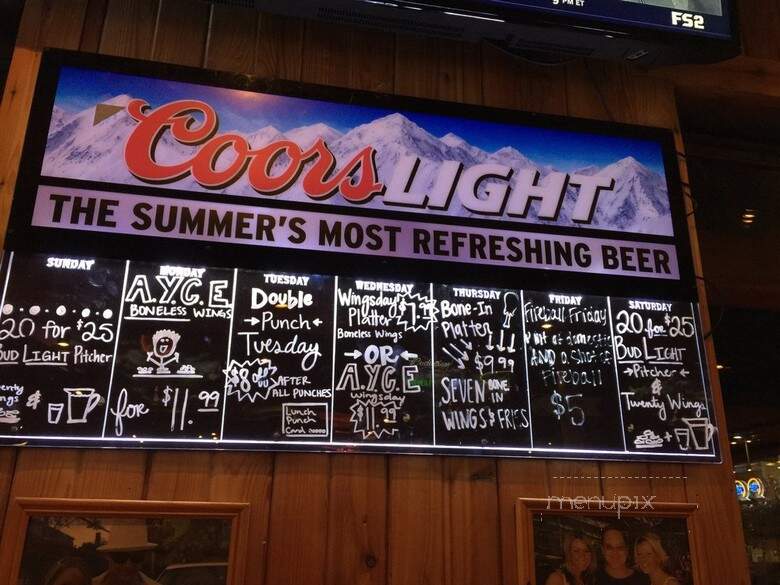 9 PM ET
FS2
Coors LIGHT
THE SUMMER'S MOST REFRESHING BEER
SUNDAY
20 for $25
BUD LIGHT Pitcher
&
MONDAY
A.Y.C.E.
BONELESS WINGS
for $11.99
TUESDAY
Double
Punch
Tuesday
$8 OFF AFTER
ALL PUNCHES
Lunch
Punch
Card
WEDNESDAY
Wingsday
Platter
Boneless Wings
OR
A.Y.C.E
wingsday
$11.99
THURSDAY
Bone-In
Platter
$9.99
SEVEN BONE
IN
WINGS & FRIES
FRIDAY
Fireball Friday
Pint of domestic
AND a shot of
Fireball
$5
SATURDAY
20 for $25
BUD LIGHT
Pitcher
+
Twenty Wings
+
menupix